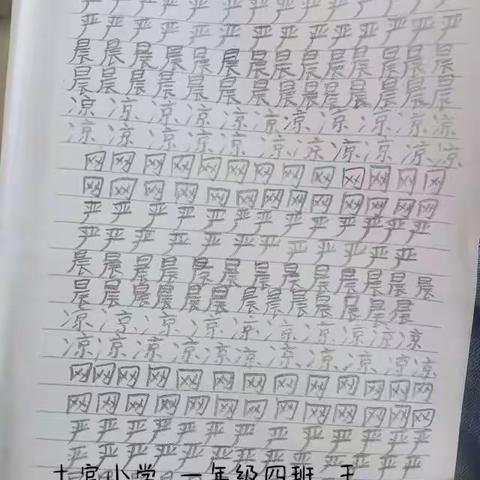 严严严严严严严严严严严严严
严严严严严严严严严严严严严
晨晨晨晨晨晨晨晨晨晨晨晨晨
晨晨晨晨晨晨晨晨晨晨晨晨晨
凉凉凉凉凉凉凉凉凉凉凉
凉凉凉凉凉凉凉凉凉凉凉
网网网网网网网网网网网网网
网网网网网网网网网网网网
严严严严严严严严严严严严严
严严严严严严严严严严严严
晨晨晨晨晨晨晨晨晨晨晨晨
晨晨晨晨晨晨晨晨晨晨晨晨晨
凉凉凉凉凉凉凉凉凉凉
凉凉凉凉凉凉凉凉凉凉
网网网网网网网网网网网网
网网网网网网网网网网网网
严严严严严严严严严严严
严严严严严严严严严严严严
小学 一年级四班 王